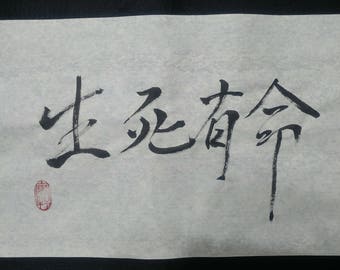 生死有命